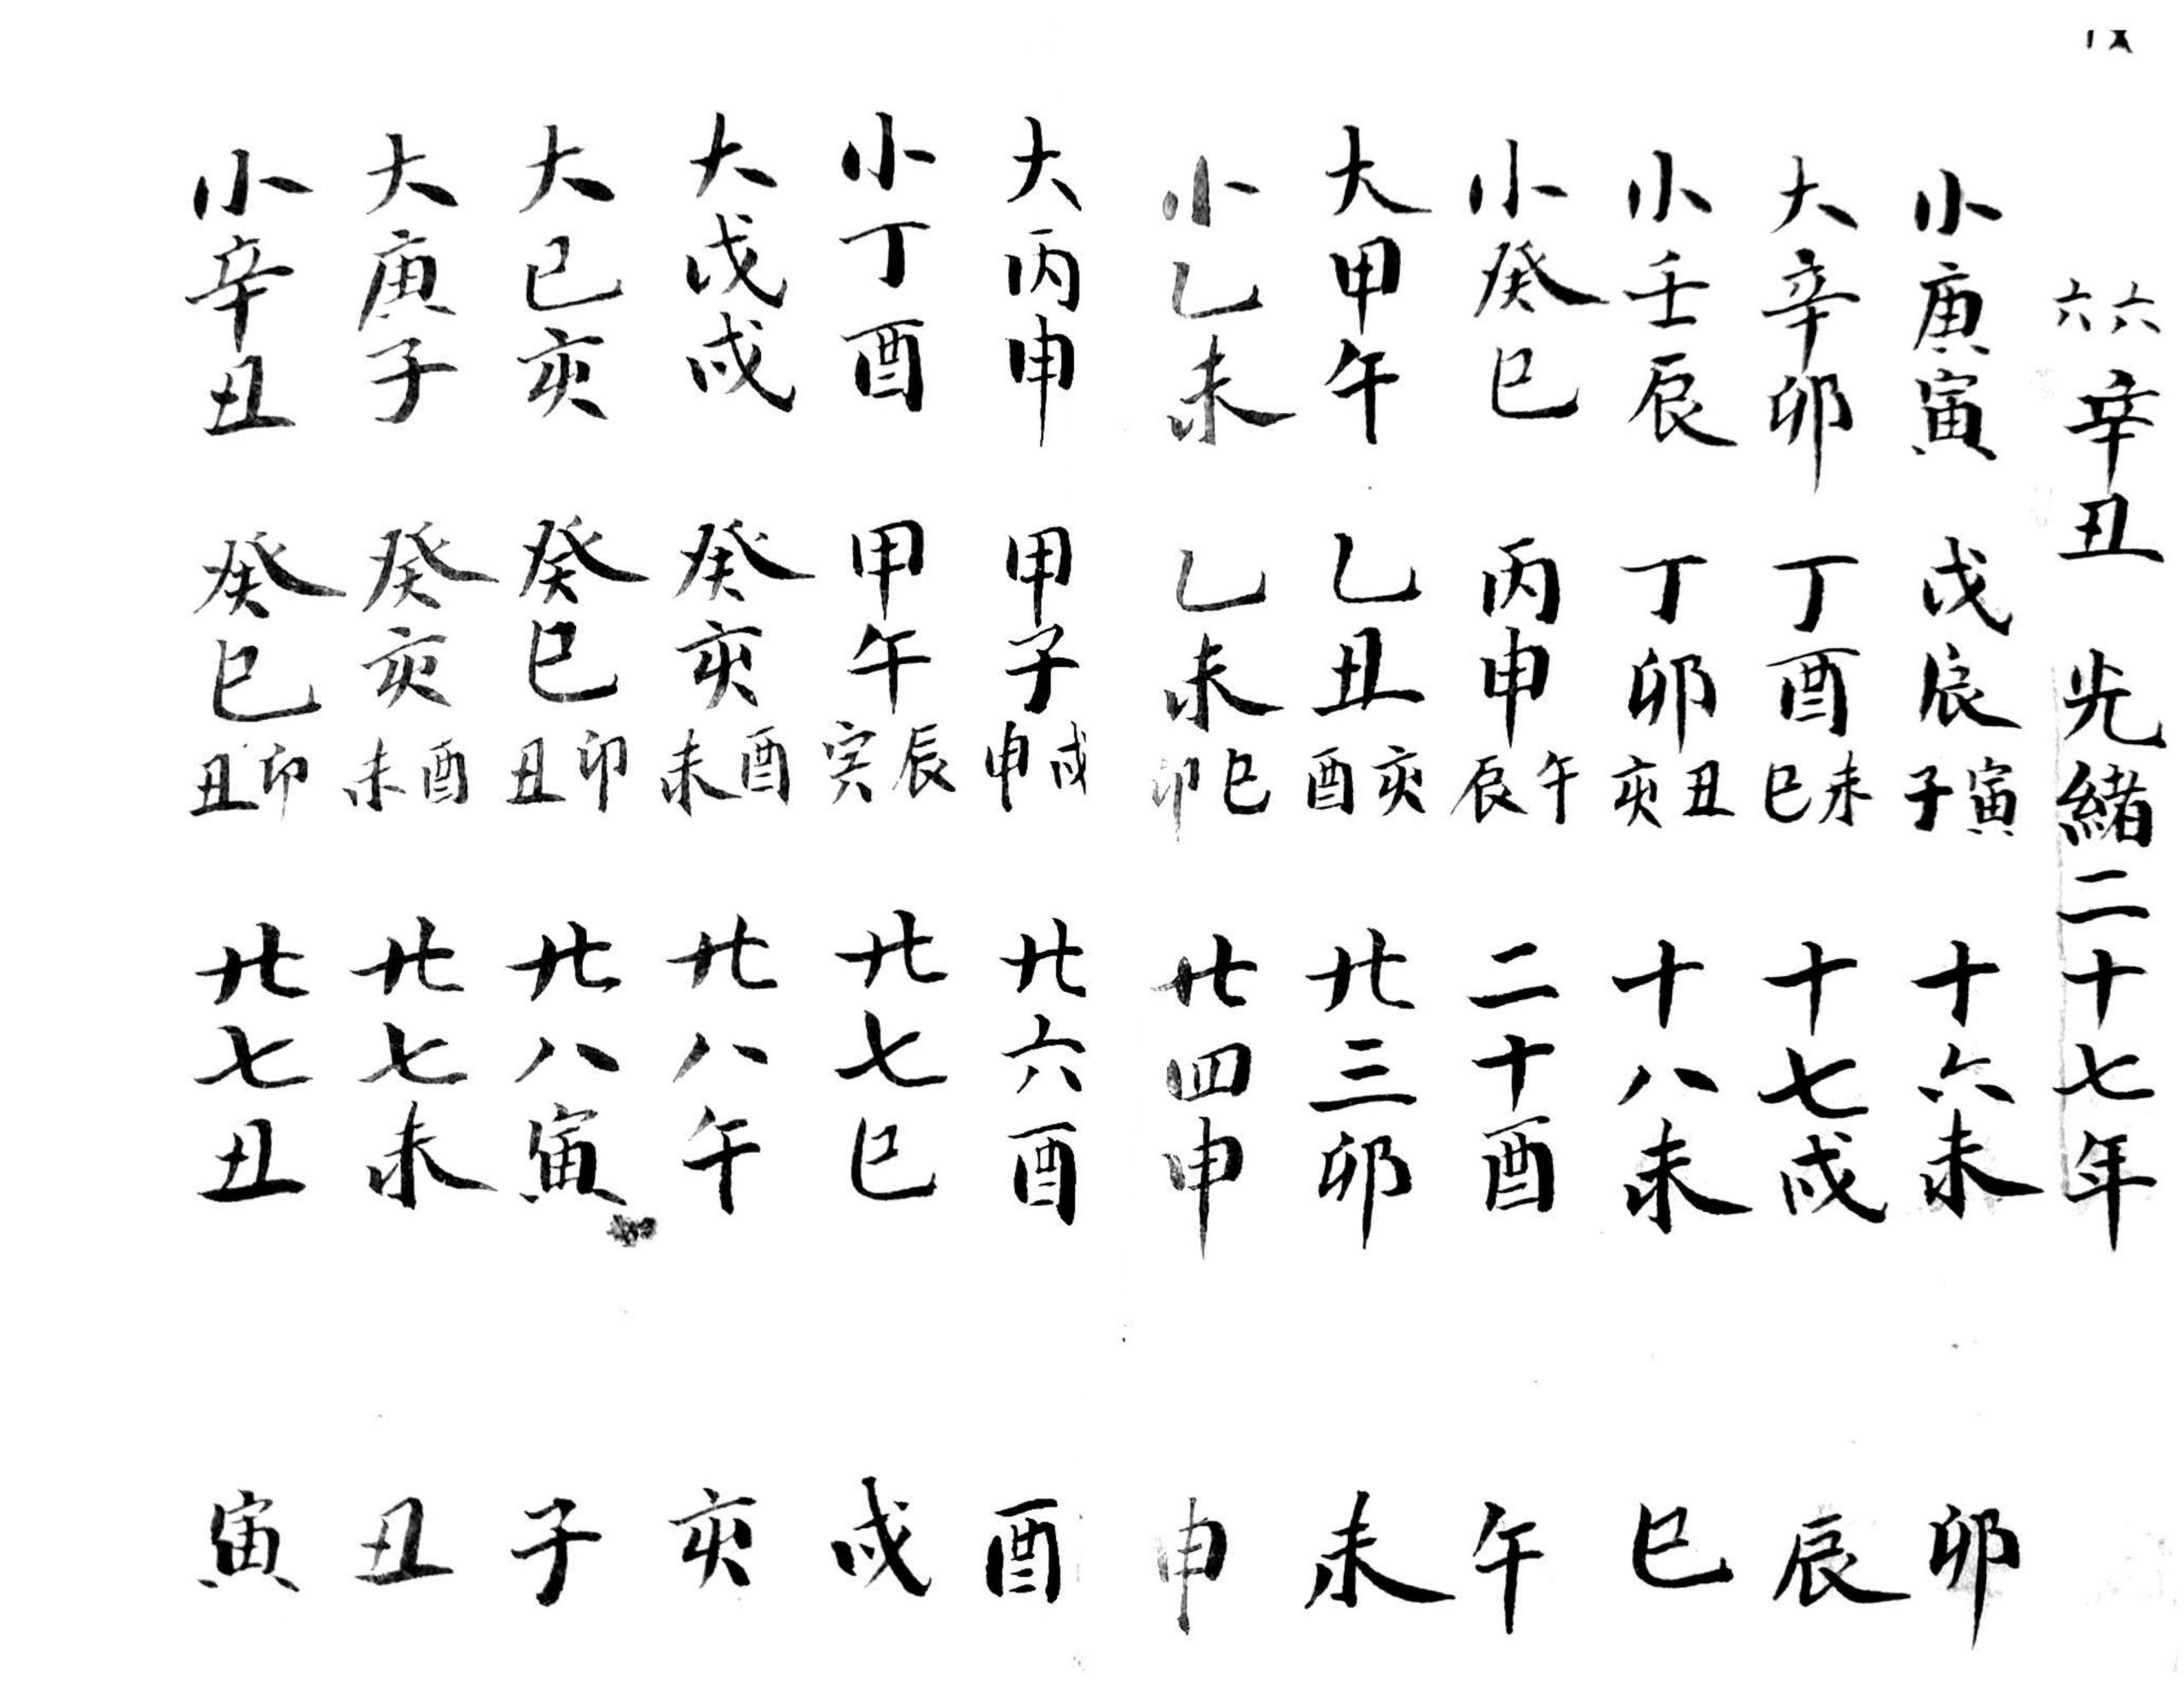 六六辛丑 光緒二十七年
小庚寅 戊辰 寅子 十六未 卯
大辛卯 丁酉 未巳 十七戌 辰
小壬辰 丁卯 丑亥 十八未 巳
小癸巳 丙申 午辰 二十酉 午
大甲午 乙丑 亥酉 廿三卯 未
小乙未 乙未 巳卯 廿四申 申
大丙申 甲子 戌申 廿六酉 酉
小丁酉 甲午 辰寅 廿七巳 戌
大戊戌 癸亥 酉未 廿八午 亥
大己亥 癸巳 卯丑 廿八寅 子
大庚子 癸亥 酉未 廿七未 丑
小辛丑 癸巳 卯丑 廿七丑 寅